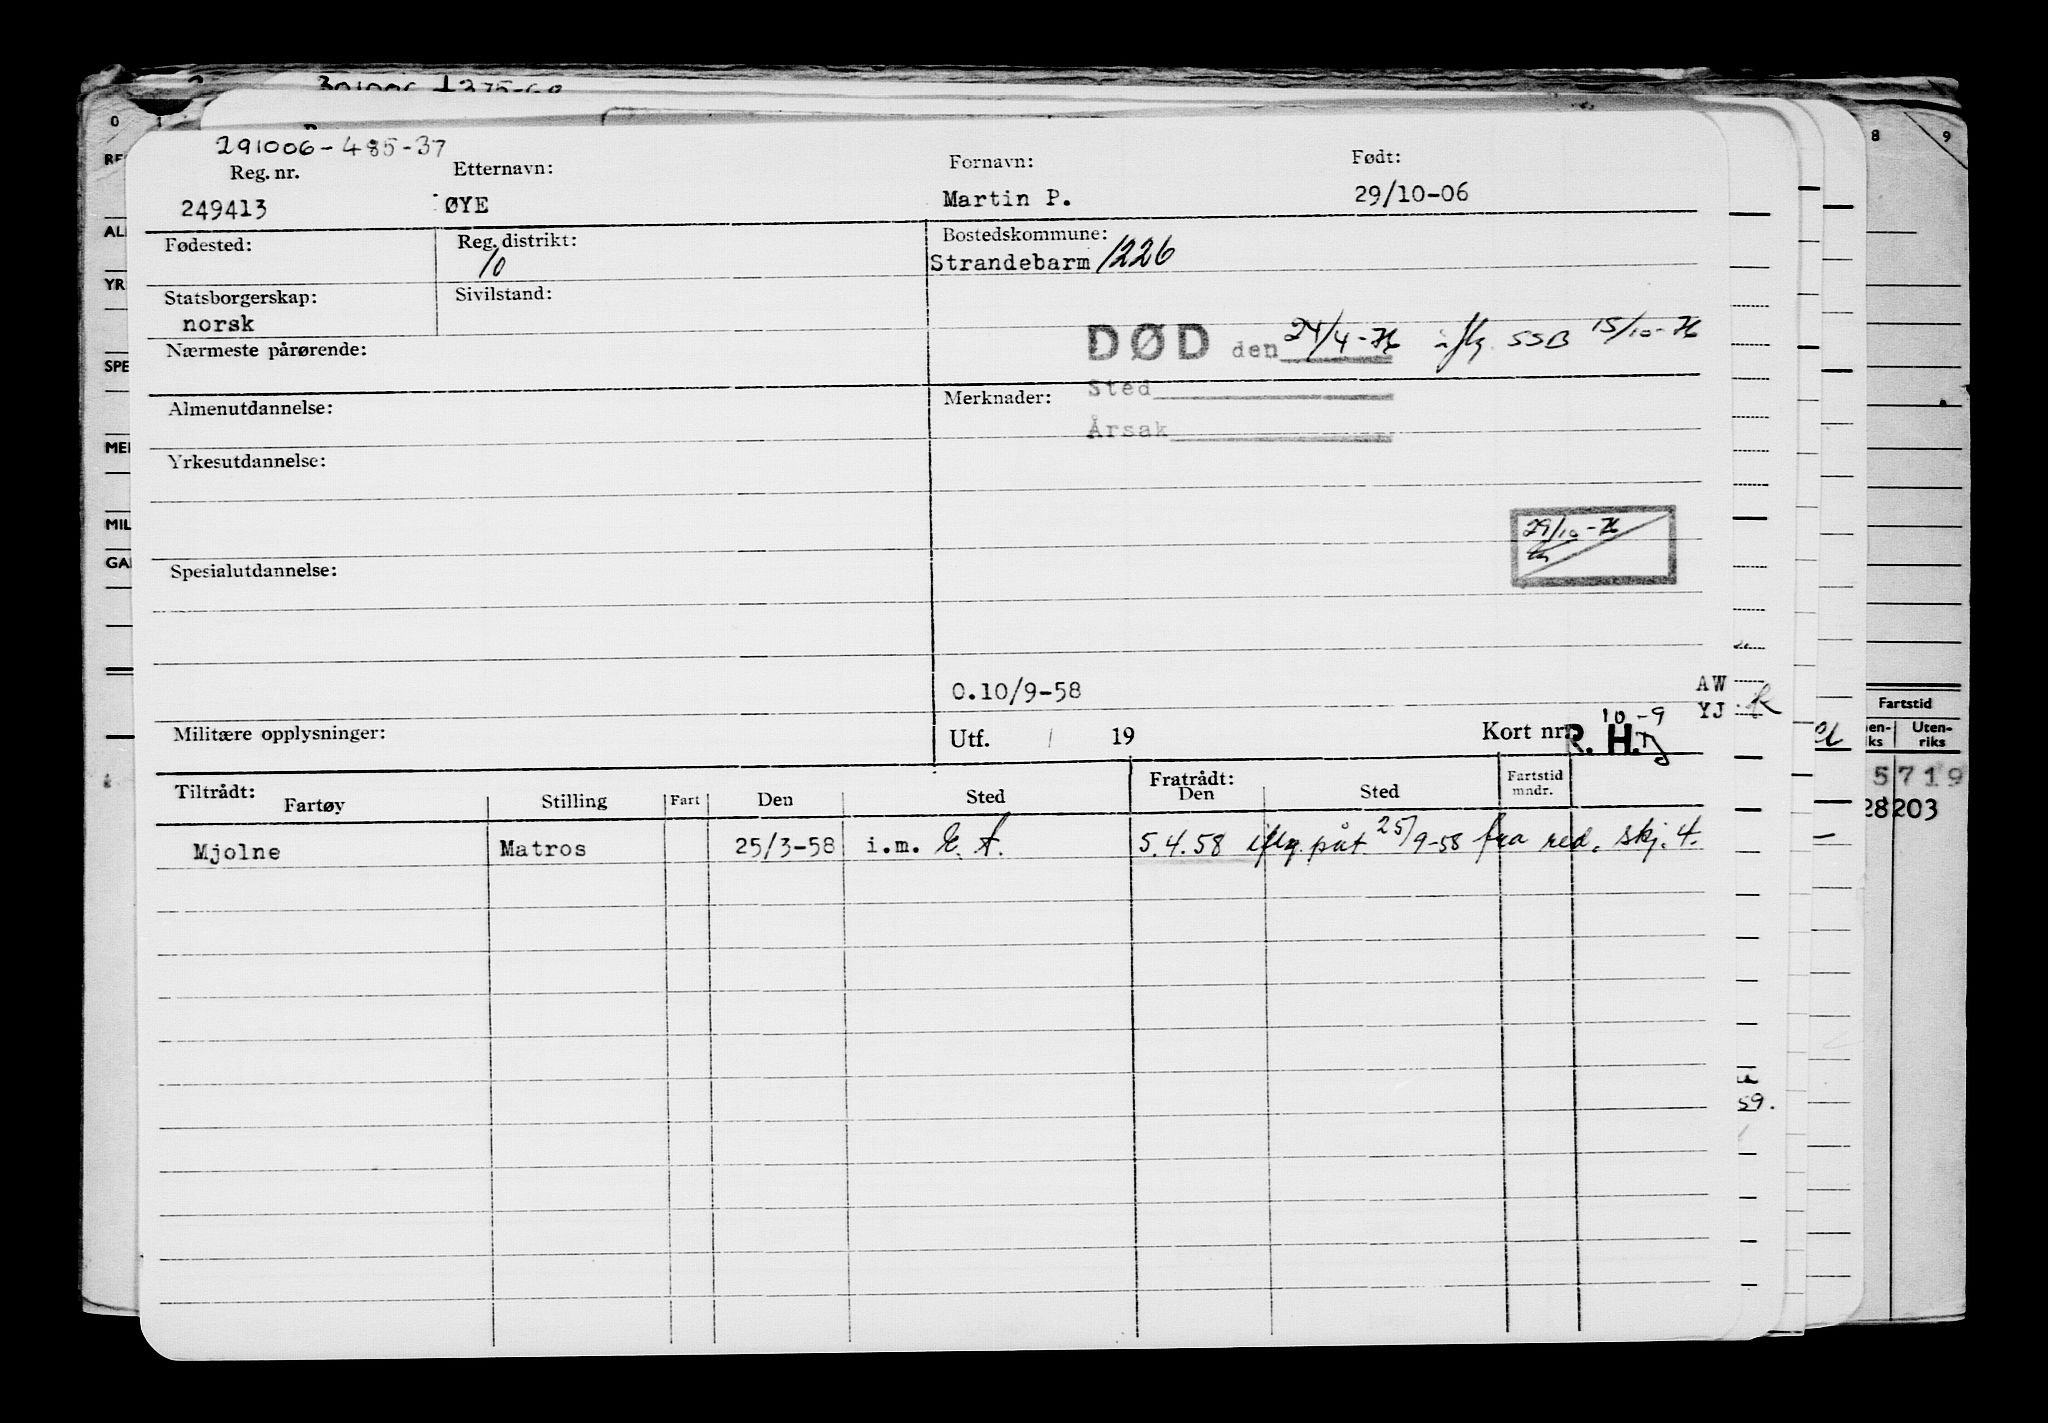 301006 1375-69
291006-485-37
Reg. nr. Etternavn: Fornavn: Født:
249413 ØYE Martin P. 29/10-06
Fødested: Reg. distrikt: Bostedskommune:
10 Strandebarm 1226
Statsborgerskap: Sivilstand:
norsk
DØD den 24/4-76 iflg. SSB 15/10-76
Nærmeste pårørende:
Sted
Almenutdannelse: Merknader:
Årsak
Yrkesutdannelse:
29/10-76
Spesialutdannelse:
0.10/9-58 AW
YJ
10-9
Militære opplysninger: Utf. / 19 Kort nr. R. H.
Tiltrådt: Fratrådt: Fartstid
Fartøy Stilling Fart Den Sted Den Sted mndr.
Mjolne Matros 25/3-58 i.m. E. A. 5.4.58 iflg. påt. 25/9-58 fra red. skj. 4.
0 1
RE
AL
YR
SPE
MEI
MIL
GA
8 9
Fartstid
en-
iks
Uten-
riks
5719
28203
59.